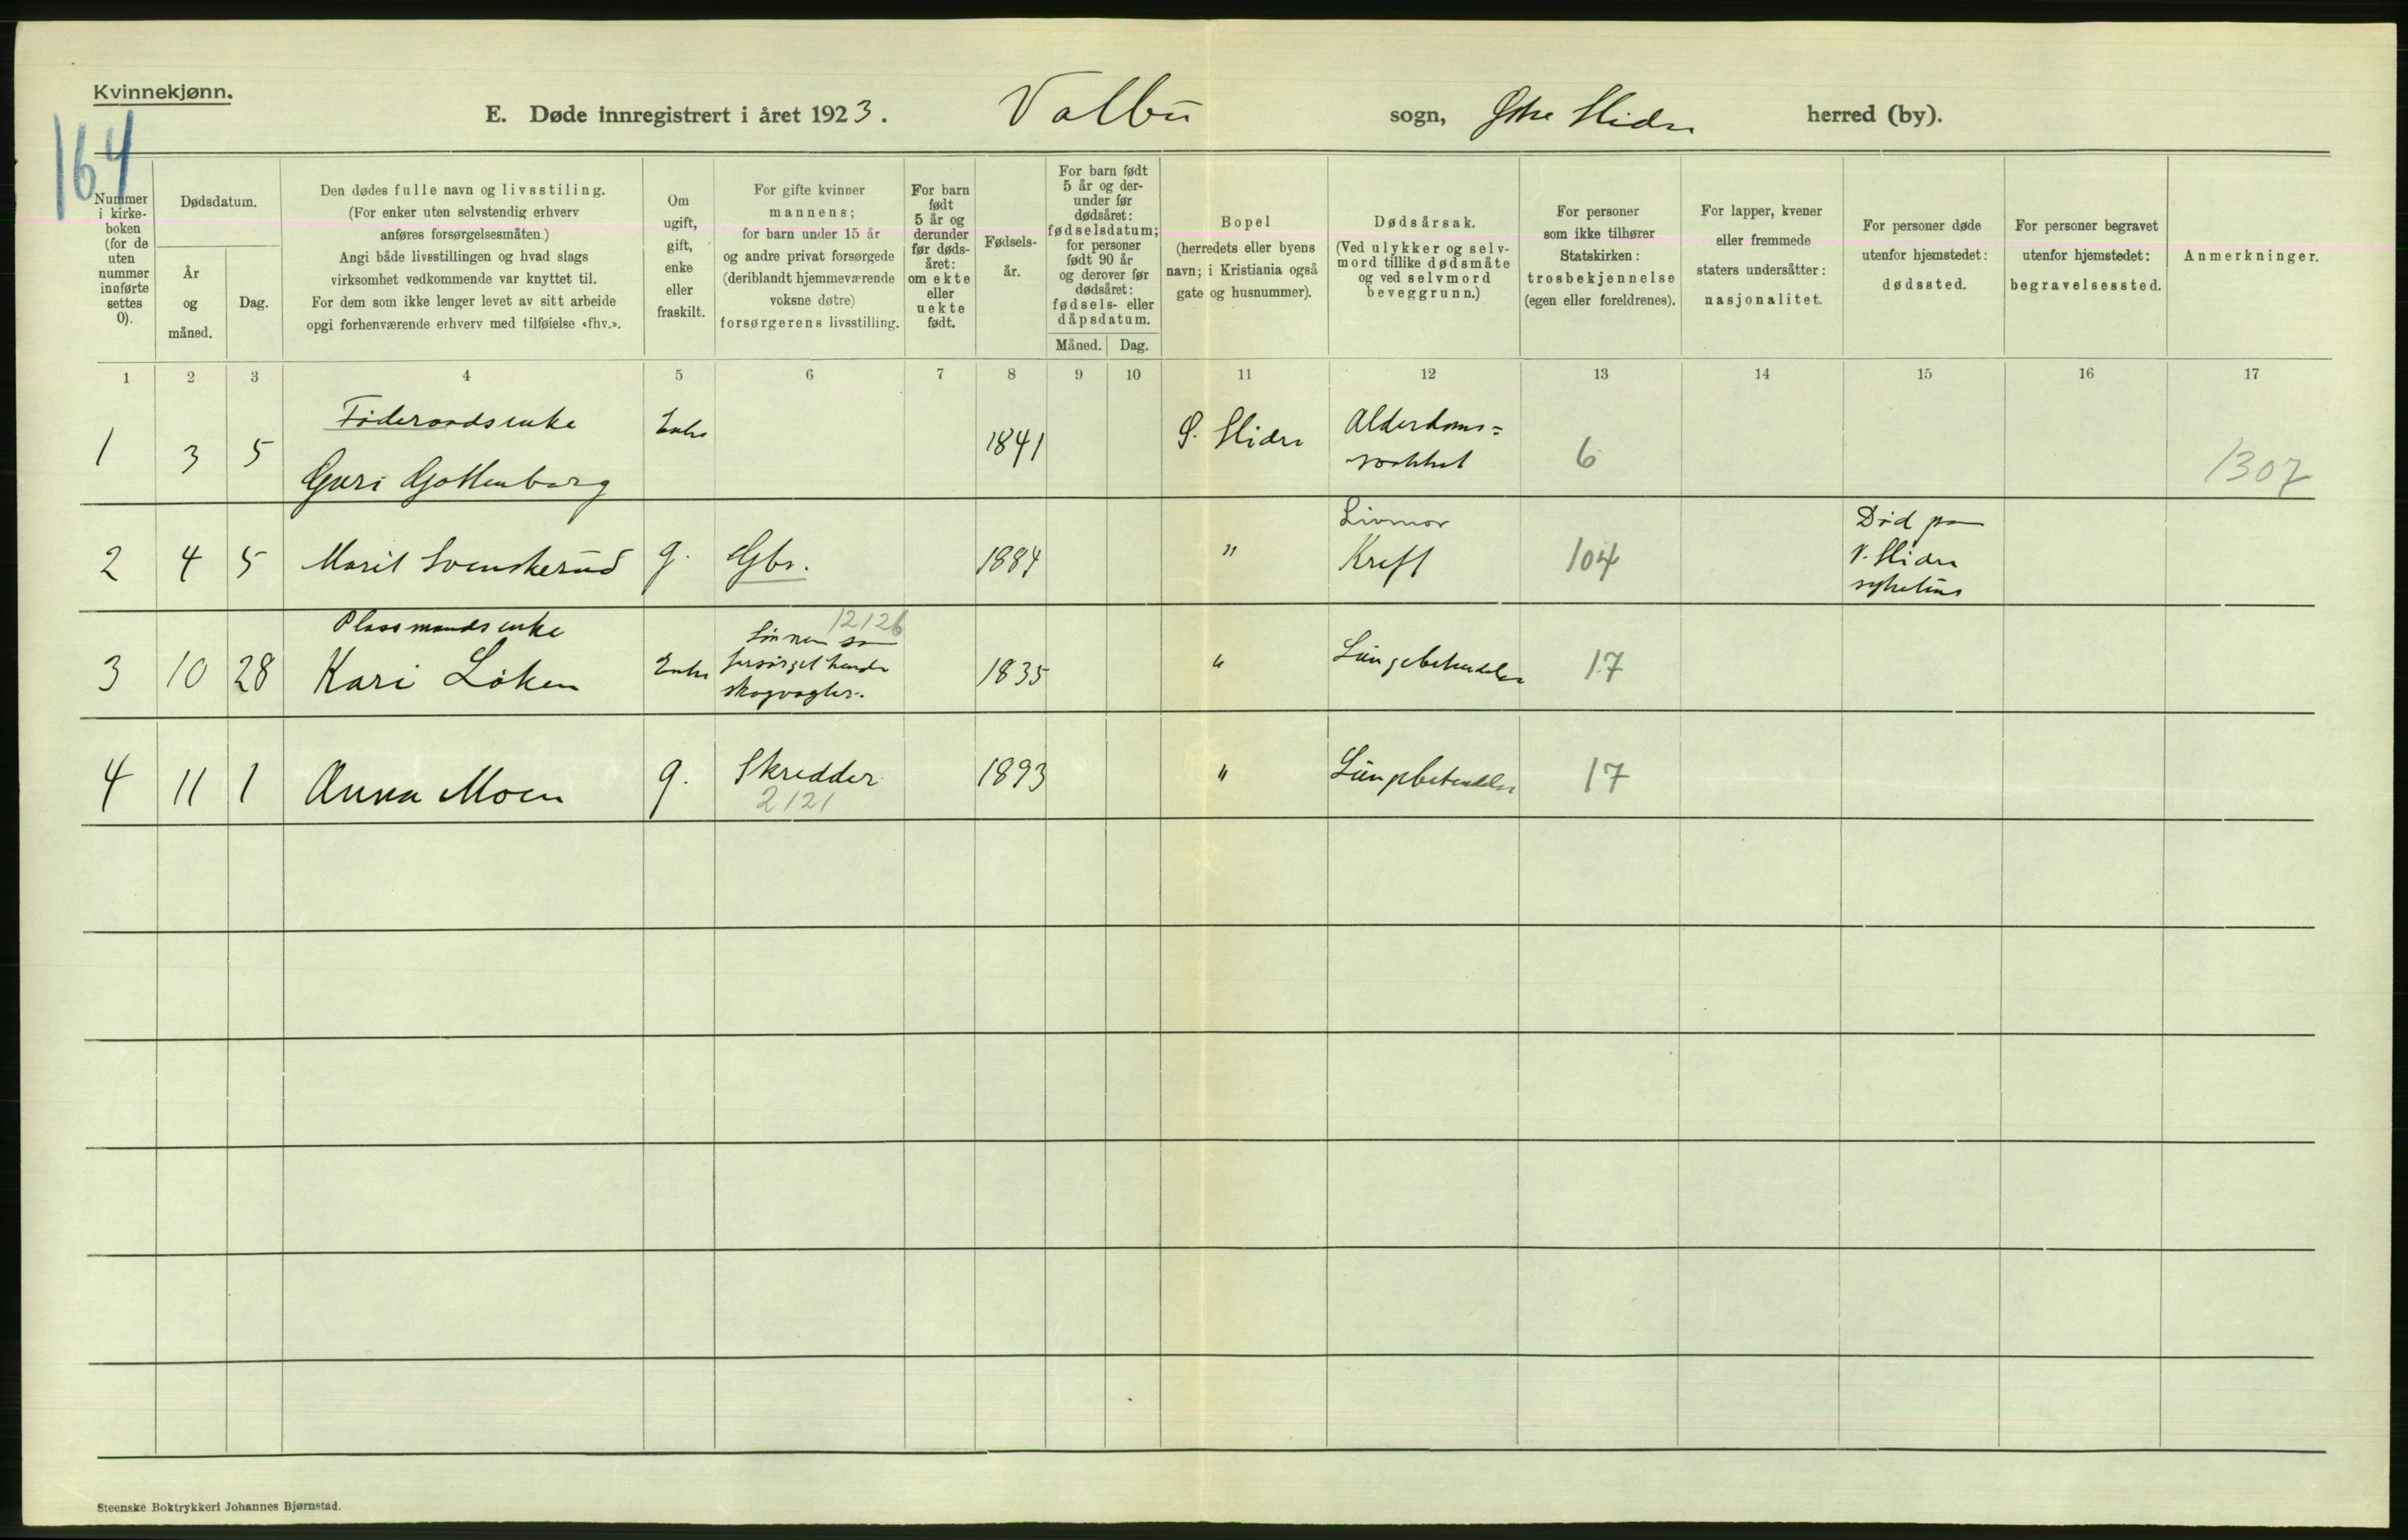 Kvinnekjønn.
164
E. Døde innregistrert i året 1923. Volbu sogn, Østre Slidre herred (by).
Nummer i kirke-boken (for de uten nummer innførte settes 0).
Dødsdatum.
År og måned.
Dag.
Den dødes fulle navn og livsstiling.
(For enker uten selvstendig erhverv
anføres forsørgelsesmåten.)
Angi både livsstillingen og hvad slags
virksomhet vedkommende var knyttet til.
For dem som ikke lenger levet av sitt arbeide
opgi forhenværende erhverv med tilføielse «fhv.».
Om
ugift,
gift,
enke
eller
fraskilt.
For gifte kvinner
mannens;
for barn under 15 år
og andre privat forsørgede
(deriblandt hjemmeværende
voksne døtre)
forsørgerens livsstilling.
For barn
født
5 år og
derunder
før døds-
året:
om ekte
eller
uekte
født.
Fødsels-
år.
For barn født
5 år og der-
under før
dødsåret:
fødselsdatum;
for personer
født 90 år
og derover før
dødsåret:
fødsels- eller
dåpsdatum.
Måned. Dag.
Bopel
(herredets eller byens
navn; i Kristiania også
gate og husnummer).
Dødsårsak.
(Ved ulykker og selv-
mord tillike dødsmåte
og ved selvmord
beveggrunn.)
For personer
som ikke tilhører
Statskirken:
trosbekjennelse
(egen eller foreldrenes).
For lapper, kvener
eller fremmede
staters undersåtter:
nasjonalitet.
For personer døde
utenfor hjemstedet:
dødssted.
For personer begravet
utenfor hjemstedet:
begravelsessted.
Anmerkninger.
1 2 3 4 5 6 7 8 9 10 11 12 13 14 15 16 17
Føderaadsenke
1 3 5 Guri Gottenborg Enke 1841 Ø. Slidre Alderdoms=
svakhet 6 1307
2 4 5 Marit Svenskerud g. Gbr. 1884 " Livmor
Kreft 104 Død paa
V. Slidre
sykehus
Plassmandsenke 12126
3 10 28 Kari Løken Enke Sønnen som
forsørget hende
skogvogter. 1835 " Lungebetendelse 17
4 11 1 Anna Moen g. Skredder 1893 " Lungebetendelse 17
2121
Steenske Boktrykkeri Johannes Bjørnstad.